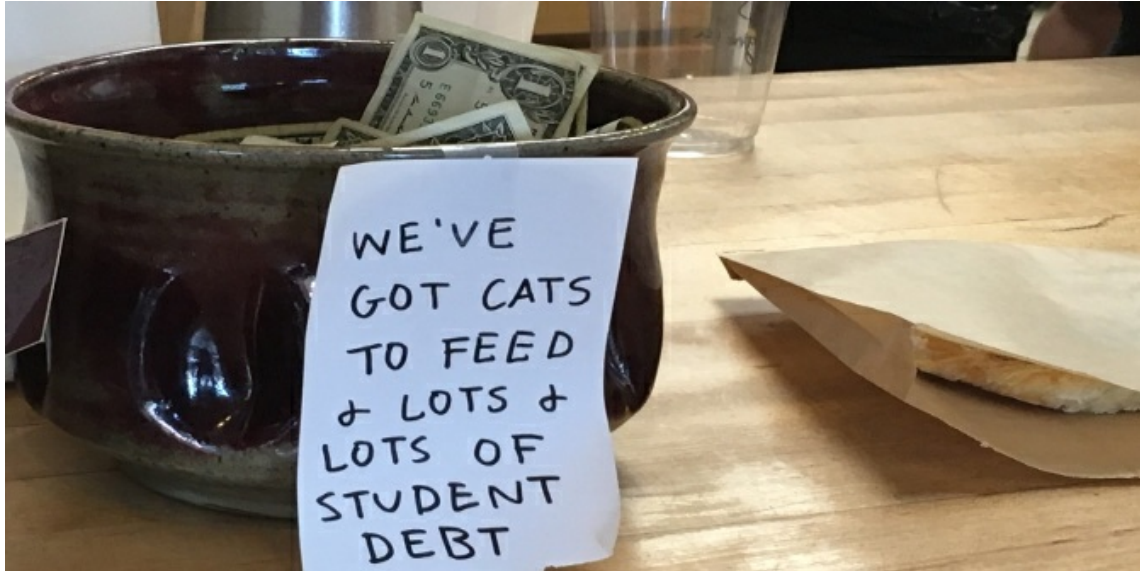 1
1
E6693
5
WE'VE
GOT CATS
TO FEED
& LOTS &
LOTS OF
STUDENT
DEBT